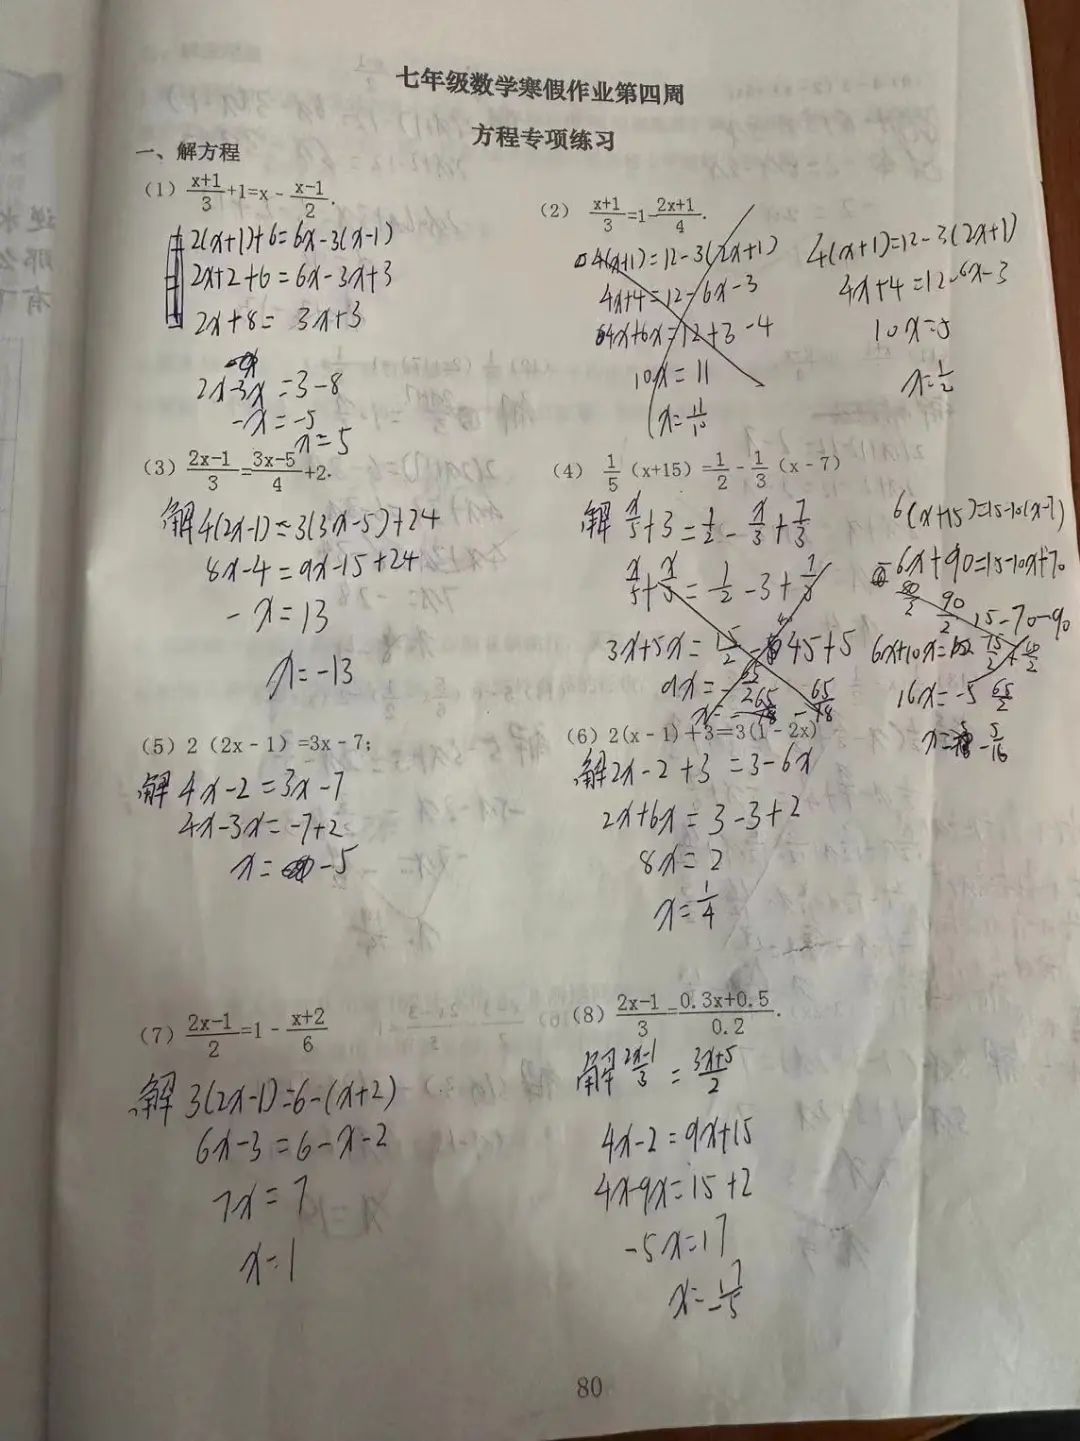 七年级数学寒假作业第四周
方程专项练习
一、解方程
(1) (x+1)/3+1=x-(x-1)/2.
2(x+1)+6=6x-3(x-1)
2x+2+6=6x-3x+3
2x+8=3x+3
2x-3x=3-8
-x=-5
x=5
(2) (x+1)/3=1-(2x+1)/4.
4(x+1)=12-3(2x+1)
4x+4=12-6x-3
4x+6x=12+3-4
10x=11
x=11/10
4(x+1)=12-3(2x+1)
4x+4=12-6x-3
10x=5
x=1/2
(3) (2x-1)/3=(3x-5)/4+2.
解 4(2x-1)=3(3x-5)+24
8x-4=9x-15+24
-x=13
x=-13
(4) 1/5(x+15)=1/2-1/3(x-7)
解 x/5+3=1/2-x/3+7/3
x/5+x/3=1/2-3+7/3
3x+5x=15/2-45+5
9x=-65/2
x=-65/18
6(x+15)=15-10(x-7)
6x+90=15-10x+70
6x+10x=
16x=-5
x=-5/16
(5) 2(2x-1)=3x-7;
解 4x-2=3x-7
4x-3x=-7+2
x=-5
(6) 2(x-1)+3=3(1-2x)
解 2x-2+3=3-6x
2x+6x=3-3+2
8x=2
x=1/4
(7) (2x-1)/2=1-(x+2)/6
解 3(2x-1)=6-(x+2)
6x-3=6-x-2
7x=7
x=1
(8) (2x-1)/3=(0.3x+0.5)/0.2.
解 (2x-1)/3=(3x+5)/2
4x-2=9x+15
4x-9x=15+2
-5x=17
x=17/-5
80